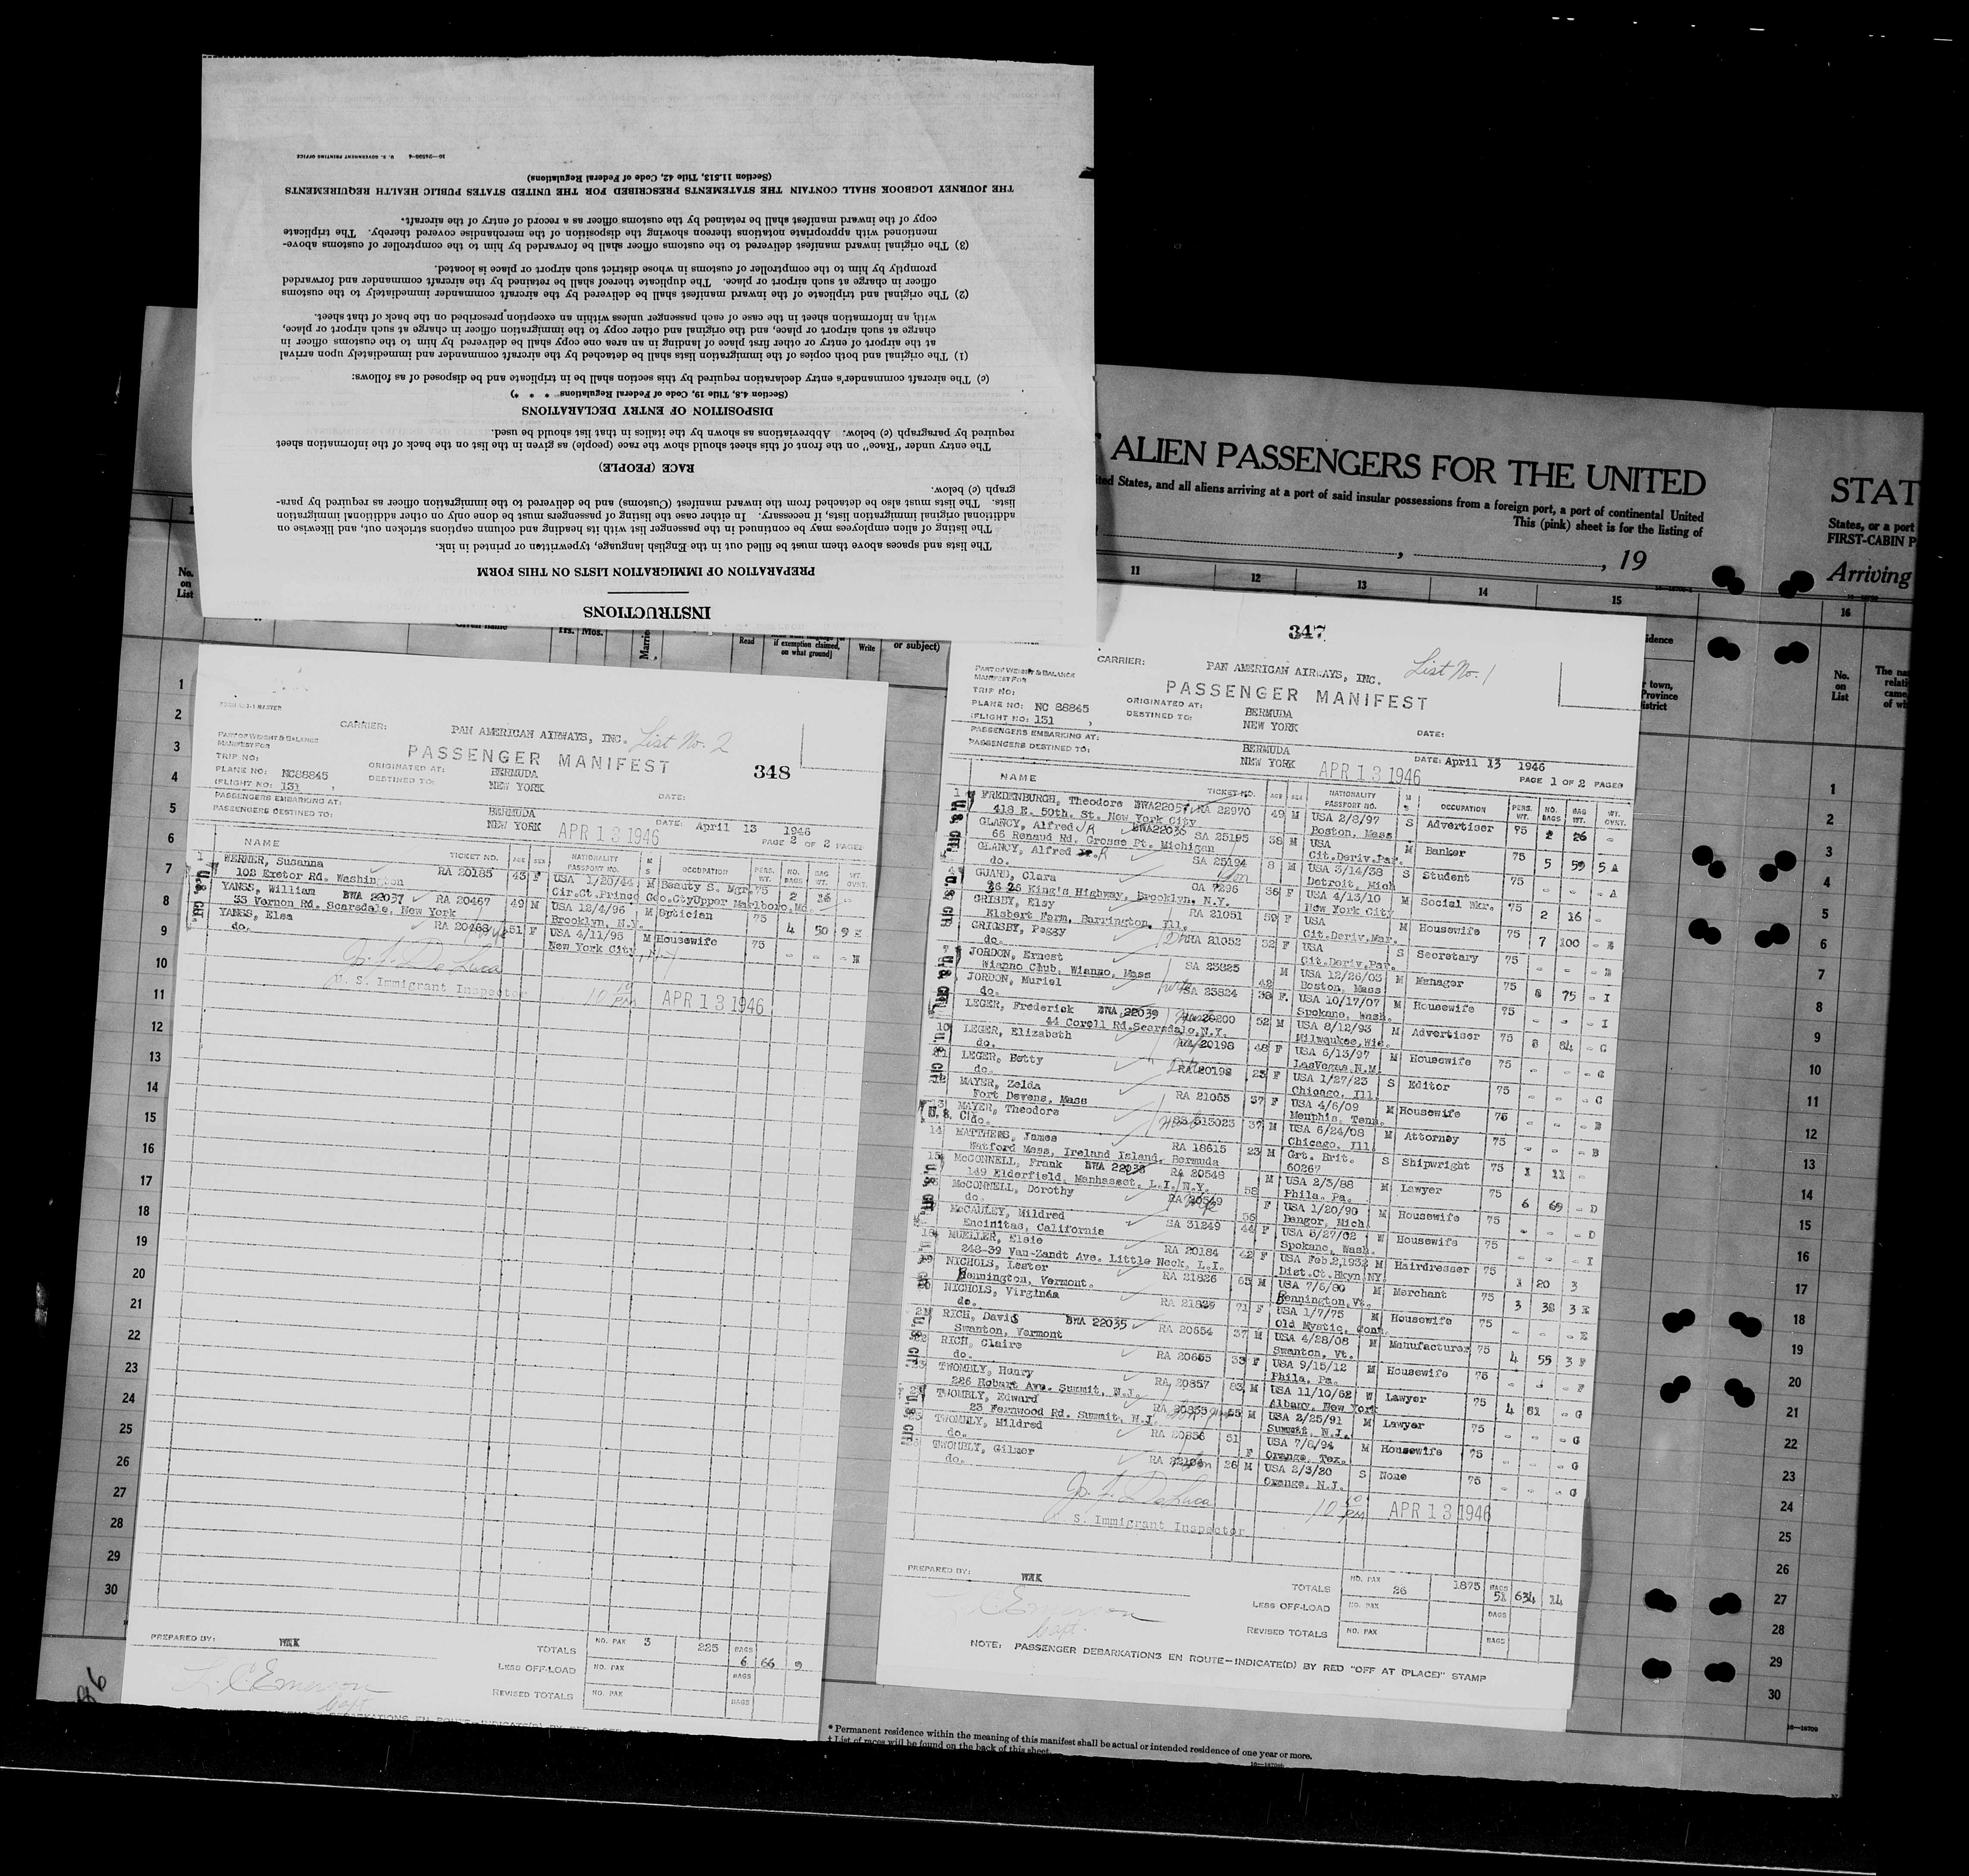 INSTRUCTIONS
PREPARATION OF IMMIGRATION LISTS ON THIS FORM
The lists and spaces above them must be filled out in the English language, typewritten or printed in ink.
The listing of alien employees may be continued in the passenger list with its heading and column captions stricken out, and likewise on
additional original immigration lists, if necessary. In either case the listing of passengers must be done only on other additional immigration
lists. The lists must also be detached from the inward manifest (Customs) and be delivered to the immigration officer as required by para-
graph (c) below.
RACE (PEOPLE)
The entry under "Race" on the front of this sheet should show the race (people) as given in the list on the back of the information sheet
required by paragraph (c) below. Abbreviations as shown by the italics in that list should be used.
DISPOSITION OF ENTRY DECLARATIONS
(Section 4.8, Title 19, Code of Federal Regulations * * *)
(c) The aircraft commander's entry declaration required by this section shall be in triplicate and be disposed of as follows:
(1) The original and both copies of the immigration lists shall be detached by the aircraft commander and immediately upon arrival
at the airport of entry or other first place of landing in an area one copy shall be delivered by him to the customs officer in
charge at such airport or place, and the original and other copy to the immigration officer in charge at such airport or place,
with an information sheet in the case of each passenger unless within an exception prescribed on the back of that sheet.
(2) The original and triplicate of the inward manifest shall be delivered by the aircraft commander immediately to the customs
officer in charge at such airport or place. The duplicate thereof shall be retained by the aircraft commander and forwarded
promptly by him to the comptroller of customs in whose district such airport or place is located.
(3) The original inward manifest delivered to the customs officer shall be forwarded by him to the comptroller of customs above-
mentioned with appropriate notations thereon showing the disposition of the merchandise covered thereby. The triplicate
copy of the inward manifest shall be retained by the customs officer as a record of entry of the aircraft.
THE JOURNEY LOGBOOK SHALL CONTAIN THE STATEMENTS PRESCRIBED FOR THE UNITED STATES PUBLIC HEALTH REQUIREMENTS
(Section 11.513, Title 42, Code of Federal Regulations)
U. S. GOVERNMENT PRINTING OFFICE
ALIEN PASSENGERS FOR THE UNITED
STAT
States, and all aliens arriving at a port of said insular possessions from a foreign port, a port of continental United
States, or a port
This (pink) sheet is for the listing of
FIRST-CABIN P
, 19
Arriving
11 12 13 14 15 16
No. on List
Read
if exemption claimed, on what ground]
Write
or subject)
No. on List
348
CARRIER: PAN AMERICAN AIRWAYS, INC. List No. 2
PART OF WEIGHT & BALANCE
MANIFEST FOR
PASSENGER MANIFEST
TRIP NO:
PLANE NO: NC88845 ORIGINATED AT: BERMUDA
FLIGHT NO: 131 DESTINED TO: NEW YORK DATE:
PASSENGERS EMBARKING AT: BERMUDA
PASSENGERS DESTINED TO: NEW YORK APR 13 1946 DATE: April 13 1946
PAGE 2 OF 2 PAGES
NAME TICKET NO. AGE SEX NATIONALITY PASSPORT NO. M S OCCUPATION PERS. WT. NO. BAGS BAG WT.
WERNER, Susanna RA 20185 43 F USA 1/25/44 M Beauty S. Mgr. 75 2 16 -
102 Exetor Rd. Washington Cir.Ct.Prince Geo.Cty Upper Marlboro, Md.
YANSS, William BWA 22037 RA 20467 49 M USA 12/4/96 M Optician 75 4 50 9 E
33 Vernon Rd. Scarsdale, New York Brooklyn, N.Y.
YANSS, Elsa RA 20468 51 F USA 4/11/95 M Housewife 75 - - - E
do. New York City, N.Y.
U.S. CIT.
U. S. Immigrant Inspector 10 PM APR 13 1946
PREPARED BY: WAK
TOTALS NO. PAX 3 225 BAGS 6 66 9
LESS OFF-LOAD NO. PAX BAGS
REVISED TOTALS NO. PAX BAGS
L. C. Emerson
Capt.
347
CARRIER: PAN AMERICAN AIRWAYS, INC. List No. 1
PART OF WEIGHT & BALANCE
MANIFEST FOR
PASSENGER MANIFEST
TRIP NO:
PLANE NO: NC 88845 ORIGINATED AT: BERMUDA
FLIGHT NO: 131 DESTINED TO: NEW YORK DATE:
PASSENGERS EMBARKING AT: BERMUDA
PASSENGERS DESTINED TO: NEW YORK APR 13 1946 DATE: April 13 1946
PAGE 1 OF 2 PAGES
NAME TICKET NO. AGE SEX NATIONALITY PASSPORT NO. M S OCCUPATION PERS. WT. NO. BAGS BAG WT.
1 FREDENBURGH, Theodore BWA22057 RA 22970 49 M USA 2/8/97 S Advertiser 75 2 26 -
418 E. 50th. St. New York City Boston, Mass
GLANCY, Alfred BWA22036 SA 25195 38 M USA M Banker 75 5 59 5 A
66 Renaud Rd. Grosse Pt. Michigan Cit.Deriv.Par.
GLANCY, Alfred SA 25194 8 M USA 3/14/38 S Student 75 - - - A
do. Detroit, Mich
GUARD, Clara OA 7296 36 F USA 4/13/10 M Social Wkr. 75 2 16 -
26 King's Highway, Brooklyn, N.Y. New York City
GRISBY, Elsy RA 21051 59 F USA M Housewife 75 7 100 - B
Elsbert Farm, Barrington, Ill. Cit.Deriv.Mar.
GRIGSBY, Peggy RA 21052 32 F USA S Secretary 75 - - - B
do. Cit.Deriv.Par.
JORDON, Ernest SA 23825 42 M USA 12/26/03 M Manager 75 8 75 - I
Wianno Club, Wianno, Mass Boston, Mass
JORDON, Muriel SA 23824 38 F USA 10/17/07 M Housewife 75 - - - I
do. Spokane, Wash.
LEGER, Frederick BWA 22039 20200 52 M USA 8/12/93 M Advertiser 75 8 84 - C
44 Corell Rd. Scarsdale, N.Y. Milwaukee, Wis.
10 LEGER, Elizabeth RA 20198 48 F USA 6/13/97 M Housewife 75 - - - C
do. LasVegas N.M.
LEGER, Betty RA 20199 23 F USA 1/27/23 S Editor 75 - - - C
do. Chicago, Ill.
MAYER, Zelda RA 21065 37 F USA 4/6/09 M Housewife 75 - - - B
Fort Devens, Mass Memphis, Tenn.
MAYER, Theodore 615023 37 M USA 6/24/08 M Attorney 75 - - - B
do. Chicago, Ill.
14 MATTHEWS, James RA 18615 23 M Grt. Brit. S Shipwright 75 1 11 -
Watford Mess, Ireland Island, Bermuda 60267
15 McCONNELL, Frank BWA 22038 RA 20548 58 M USA 2/3/88 M Lawyer 75 6 69 - D
149 Elderfield, Manhasset, L.I. N.Y. Phila. Pa.
McCONNELL, Dorothy RA 20549 56 F USA 1/20/90 M Housewife 75 - - - D
do. Bangor, Mich
McCAULEY, Mildred SA 31249 44 F USA 5/27/02 W Housewife 75 - - - I
Encinitas, California Spokane, Wash.
MUELLER, Elsie RA 20184 42 F USA Feb.2,1932 M Hairdresser 75 1 20 3
248-39 Van-Zandt Ave. Little Neck, L.I. Dist.Ct.Bkyn NY.
NICHOLS, Lester RA 21826 65 M USA 7/6/80 M Merchant 75 3 38 3 E
Bennington, Vermont. Bennington, Vt.
NICHOLS, Virginia RA 21827 71 F USA 1/7/75 M Housewife 75 - - - E
do. Old Mystic, Conn.
RICH, David BWA 22035 RA 20654 37 M USA 4/28/08 M Manufacturer 75 4 55 3 F
Swanton, Vermont Swanton, Vt.
RICH, Claire RA 20655 33 F USA 9/15/12 M Housewife 75 - - - F
do. Phila, Pa.
TWOMBLY, Henry RA 20857 83 M USA 11/10/62 W Lawyer 75 4 81 - G
226 Hobart Ave. Summit, N.J. Albany, New York
TWOMBLY, Edward RA 20855 55 M USA 2/25/91 M Lawyer 75 - - - G
23 Fernwood Rd. Summit, N.J. Summit, N.J.
TWOMBLY, Mildred RA 20856 51 F USA 7/8/94 M Housewife 75 - - - G
do. Orange, Tex.
TWOMBLY, Gilmer RA 26 M USA 2/3/20 S None 75 - - - G
do. Orange, N.J.
S. Immigrant Inspector 10 PM APR 13 1946
PREPARED BY: WAK
TOTALS NO. PAX 26 1875 BAGS 51 634 14
LESS OFF-LOAD NO. PAX BAGS
REVISED TOTALS NO. PAX BAGS
L. C. Emerson
Capt.
NOTE: PASSENGER DEBARKATIONS EN ROUTE—INDICATE(D) BY RED "OFF AT (PLACE)" STAMP
* Permanent residence within the meaning of this manifest shall be actual or intended residence of one year or more.
† List of races will be found on the back of this sheet.